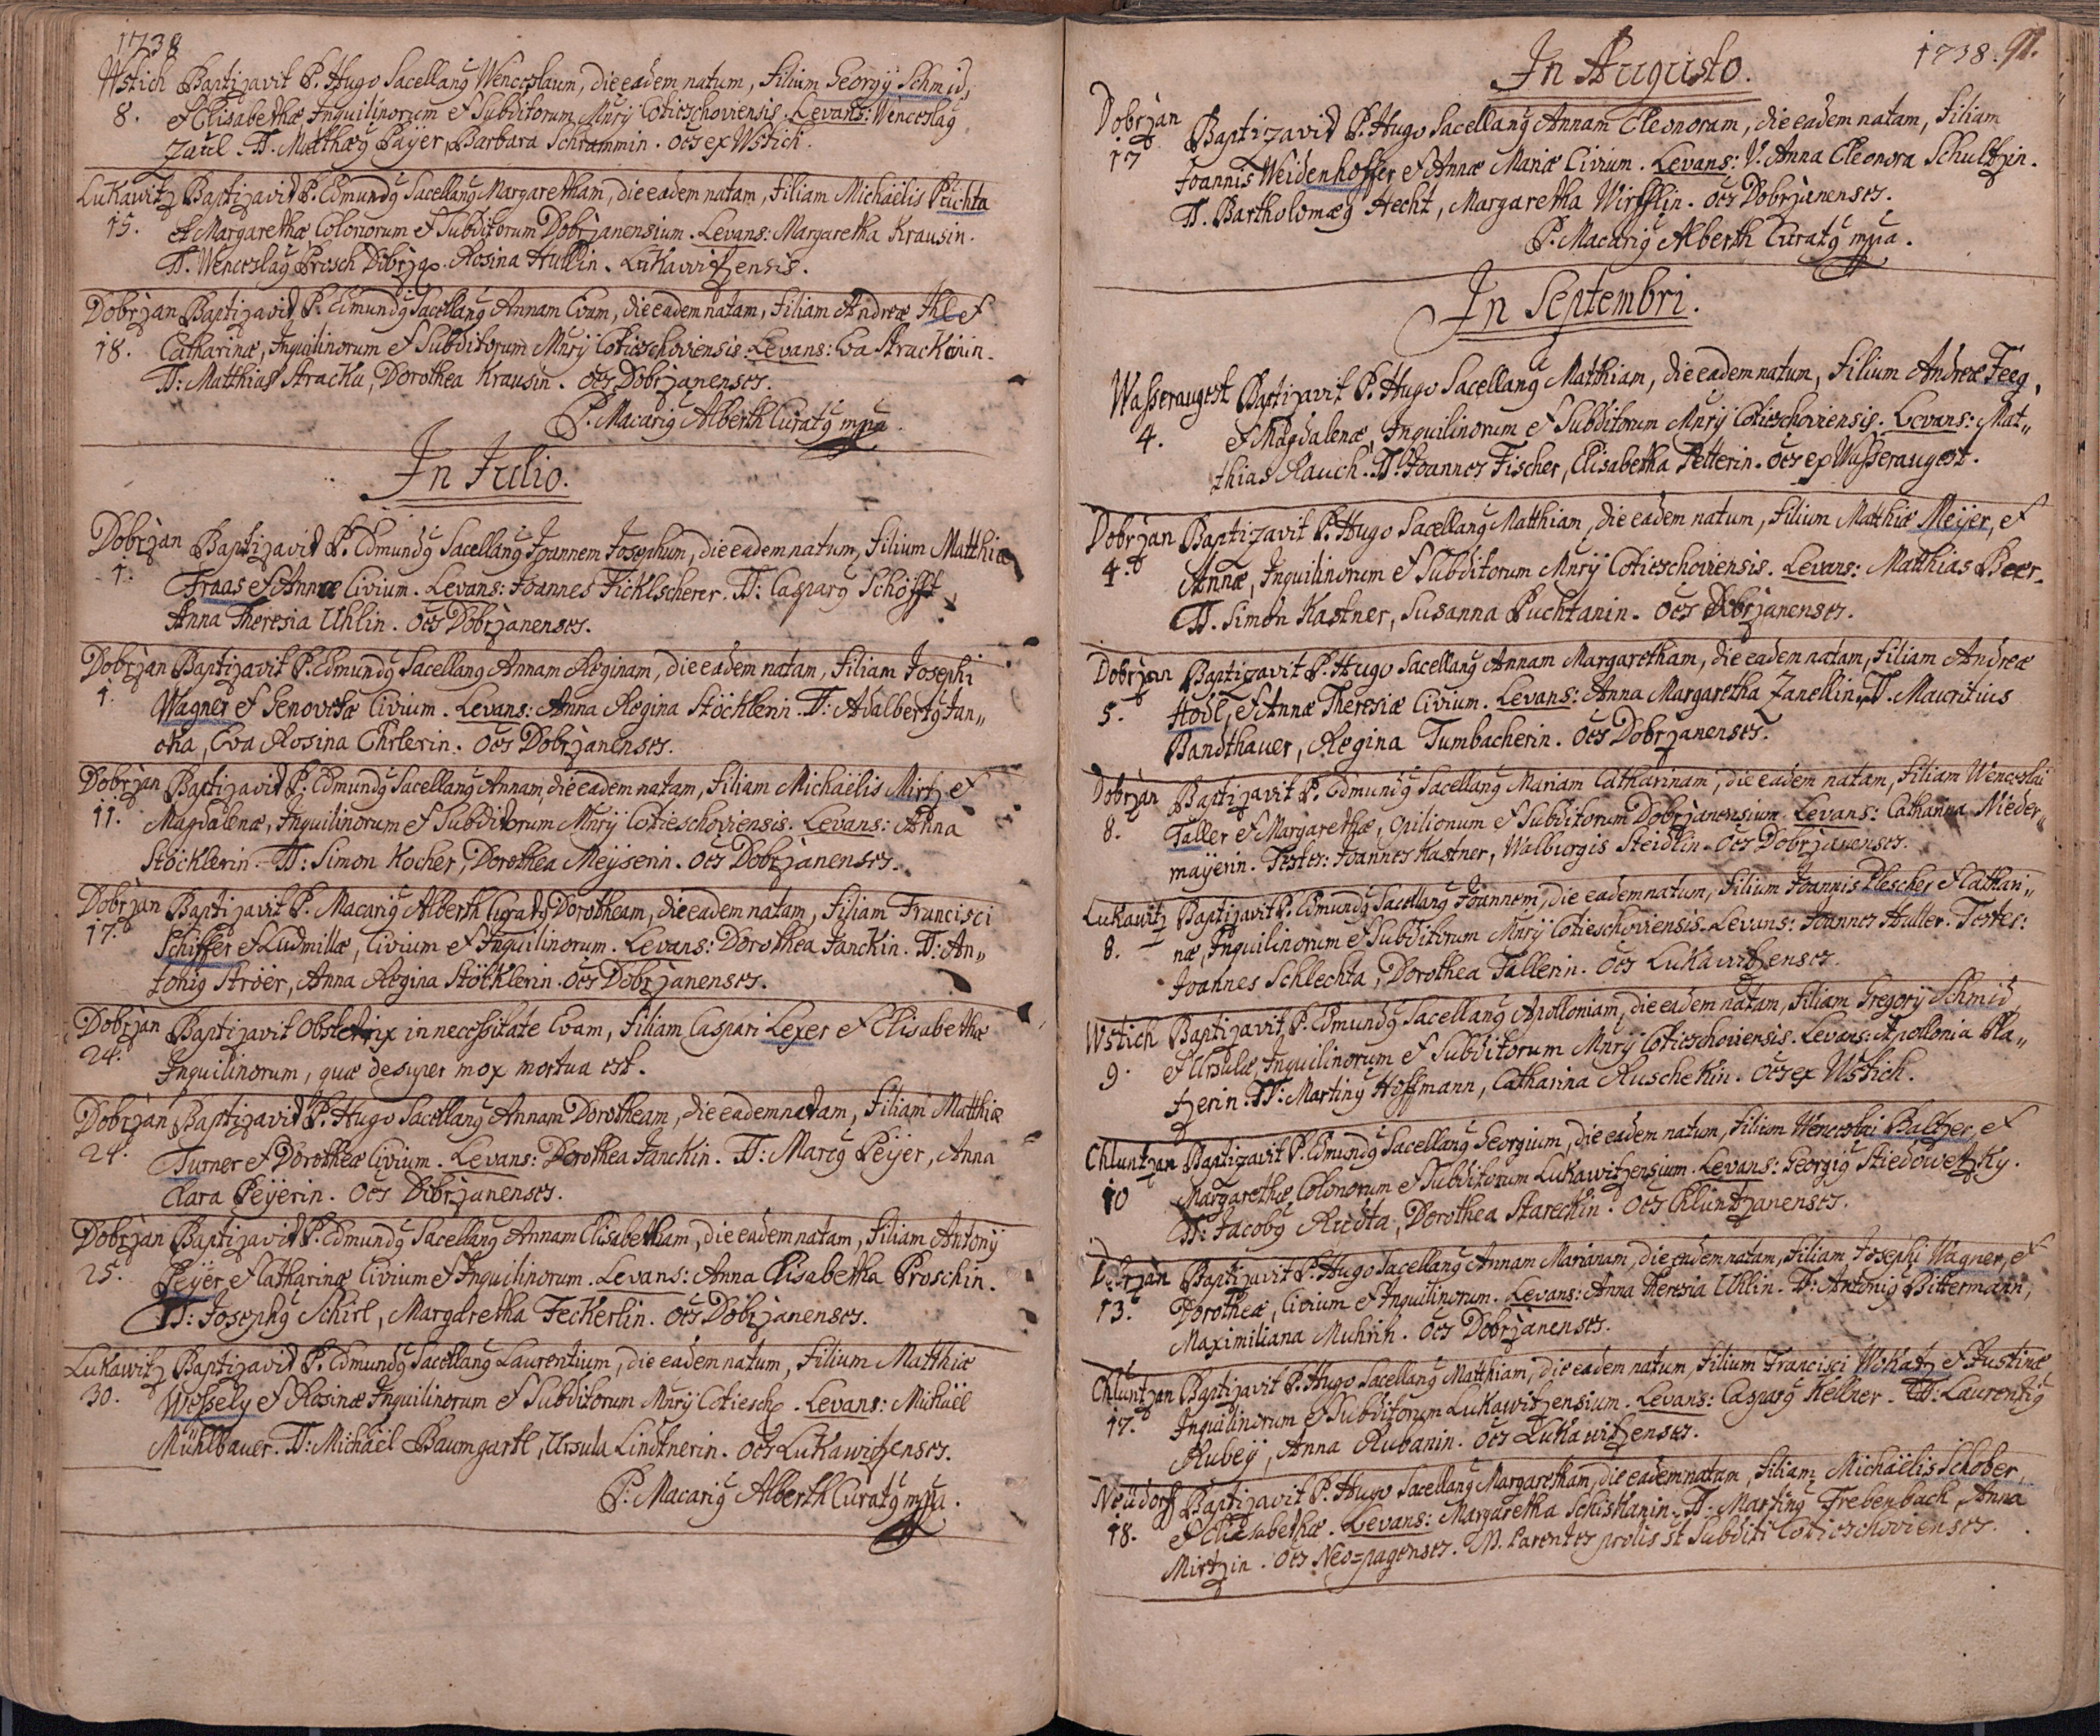 1738
Wstich Baptizavit P. Hugo Sacellanꝰ Wenceslaum, die eadem natum, Filium Georgij Schmid,
8. et Elisabethæ Inquilinorum et Subditorum Mnrij Cotieschoviensis. Levans: Wenceslaꝰ
Zaul. TT. Matthæꝰ Paÿer, Barbara Schrammin. oēs ex Wstich.
Lukawitz Baptizavit P. Edmundꝰ Sacellanꝰ Margaretham, die eadem natam, Filiam Michaëlis Puchta
15. et Margarethæ Colonorum et Subditorum Dobrzanensium. Levans: Margaretha Krausin.
TT. Wenceslaꝰ Prosch Dobrzaṇ. Rosina Hullin. Lukawitzensis.
Dobrzan Baptizavit P. Edmundꝰ Sacellanꝰ Annam Evam, die eadem natam, Filiam Andreæ Ihl et
18. Catharinæ, Inquilinorum et Subditorum Mnrij Cotieschoviensis. Levans: Eva Strackinin.
TT: Matthias Stracka, Dorothea Krausin. oēs Dobrzanenses.
P. Macariꝰ Alberth Curatꝰ mpia.
In Julio.
Dobrzan Baptizavit P. Edmundꝰ Sacellanꝰ Joannem Josephum, die eadem natum, Filium Matthiæ
1. Fraas et Annæ Civium. Levans: Joannes Ficklscherer. TT: Casparꝰ Schöfft,
Anna Theresia Uhlin. oēs Dobrzanenses.
Dobrzan Baptizavit P. Edmundꝰ Sacellanꝰ Annam Reginam, die eadem natam, Filiam Josephi
1. Wagner et Genovefæ Civium. Levans: Anna Regina Stöcklerin. TT: Adalbertꝰ Jan„
oka, Eva Rosina Ehrlerin. oēs Dobrzanenses.
Dobrzan Baptizavit P: Edmundꝰ Sacellanꝰ Annam, die eadem natam, Filiam Michaëlis Mirtz et
11. Magdalenæ, Inquilinorum et Subditorum Mnrij Cotieschoviensis. Levans: Anna
Stöcklerin. TT: Simon Kocher, Dorothea Meÿserin. oēs Dobrzanenses.
Dobrzan Baptizavit P. Macariꝰ Alberth Curatꝰ Dorotheam, die eadem natam, Filiam Francisci
17. Schiffer et Ludmillæ, Civium et Inquilinorum. Levans: Dorothea Janckin. TT: An„
toniꝰ Ströer, Anna Regina Stöcklerin. oēs Dobrzanenses.
Dobrzan Baptizavit Obstetrix in necessitate Evam, Filiam Caspari Lexer et Elisabethæ
24. Inquilinorum, quæ desuper mox mortua est.
Dobrzan Baptizavit P. Hugo Sacellanꝰ Annam Dorotheam, die eadem natam, Filiam Matthiæ
24. Turner et Dorotheæ Civium. Levans: Dorothea Janckin. TT: Marcꝰ Peÿer, Anna
Clara Peÿerin. oēs Dobrzanenses.
Dobrzan Baptizavit P. Edmundꝰ Sacellanꝰ Annam Elisabetham, die eadem natam, Filiam Antonij
25. Peÿer et Catharinæ Civium et Inquilinorum. Levans: Anna Elisabetha Proschin.
TT: Josephꝰ Schirl, Margaretha Feckerlin. oēs Dobrzanenses.
Lukawitz Baptizavit P. Edmundꝰ Sacellanꝰ Laurentium, die eadem natum, Filium Matthiæ
30. Wessely et Rosinæ Inquilinorum et Subditorum Mnrij Cotiesch. Levans: Michaël
Mühlbauer. TT: Michaël Baumgartl, Ursula Lindtnerin. oēs Lukawitzenses.
P. Macariꝰ Alberth Curatꝰ mpia.
1738. 91.
In Augusto.
Dobrzan Baptizavit P. Hugo Sacellanꝰ Annam Eleonoram, die eadem natam, Filiam
17 Joannis Weidenhoffer et Annæ Mariæ Civium. Levans: V. Anna Eleonora Schultzin.
TT. Bartholomæꝰ Hecht, Margaretha Wirfflin. oēs Dobrzanenses.
P. Macariꝰ Alberth Curatꝰ mpia.
In Septembri.
Wasseraugest Baptizavit P. Hugo Sacellanꝰ Matthiam, die eadem natum, Filium Andreæ Feeg,
4. et Magdalenæ, Inquilinorum et Subditorum Mnrij Cotieschoviensis. Levans: Mat„
thias Rauch. TT. Joannes Fischer, Elisabetha Petterin. oēs ex Wasseraugest.
Dobrzan Baptizavit P. Hugo Sacellanꝰ Matthiam, die eadem natum, Filium Matthiæ Meÿer, et
4. Annæ, Inquilinorum et Subditorum Mnrij Cotieschoviensis. Levans: Matthias Beer.
TT. Simon Kastner, Susanna Puchtanin. oēs Dobrzanenses.
Dobrzan Baptizavit P. Hugo Sacellanꝰ Annam Margaretham, die eadem natam, Filiam Andreæ
5. Hodl, et Annæ Theresiæ Civium. Levans: Anna Margaretha Zanellin. TT. Mauritius
Bandthauer, Regina Tumbacherin. oēs Dobrzanenses.
Dobrzan Baptizavit P. Edmundꝰ Sacellanꝰ Mariam Catharinam, die eadem natam, Filiam Wenceslai
8. Taller et Margarethæ, Opilionum et Subditorum Dobrzanensium. Levans: Catharina Nieder„
maÿerin. Testes: Joannes Kastner, Walburgis Steidlin. oēs Dobrzanenses.
Lukawitz Baptizavit P. Edmundꝰ Sacellanꝰ Joannem, die eadem natum, Filium Joannis Plescher et Cathari„
8. næ, Inquilinorum et Subditorum Mnrij Cotieschoviensis. Levans: Joannes Huller. Testes:
Joannes Schlechta, Dorothea Tallerin. oēs Lukawitzenses.
Wstich Baptizavit P. Edmundꝰ Sacellanꝰ Apolloniam, die eadem natam, Filiam Gregorij Schmid
9. et Ursulæ, Inquilinorum et Subditorum Mnrij Cotieschoviensis. Levans: Apollonia Pla„
tzerin. TT: Martinꝰ Hoffmann, Catharina Ruschekin. oēs ex Ustich.
Chluntzan Baptizavit P. Edmundꝰ Sacellanꝰ Georgium, die eadem natum, Filium Wenceslai Baltzer, et
10 Margarethæ Colonorum et Subditorum Lukawitzensium. Levans: Georgiꝰ Stiedowetzky.
TT: Jacobꝰ Rudta, Dorothea Stareckin. oēs Chluntzanenses.
Dobrzan Baptizavit P. Hugo Sacellanꝰ Annam Marianam, die eadem natam, Filiam Josephi Wagner, et
13. Dorotheæ, Civium et Inquilinorum. Levans: Anna Theresia Uhlin. TT: Antoniꝰ Bittermann,
Maximiliana Muhrih. oēs Dobrzanenses.
Chluntzan Baptizavit P. Hugo Sacellanꝰ Matthiam, die eadem natum, Filium Francisci Wokatz et Justinæ
17. Inquilinorum et Subditorum Lukawitzensium. Levans: Casparꝰ Kellner. TT: Laurentiꝰ
Rubeÿ, Anna Rubanin. oēs Lukawitzenses.
Neudorf Baptizavit P. Hugo Sacellanꝰ Margaretham, die eadem natam, Filiam Michaëlis Schober,
18. et Elisabethæ. Levans: Margaretha Schiskanin. TT. Martinꝰ Frebenbach, Anna
Mirtzin. oēs Neo=pagenses. N. Parentes prolis st Subditi Cotieschovienses.